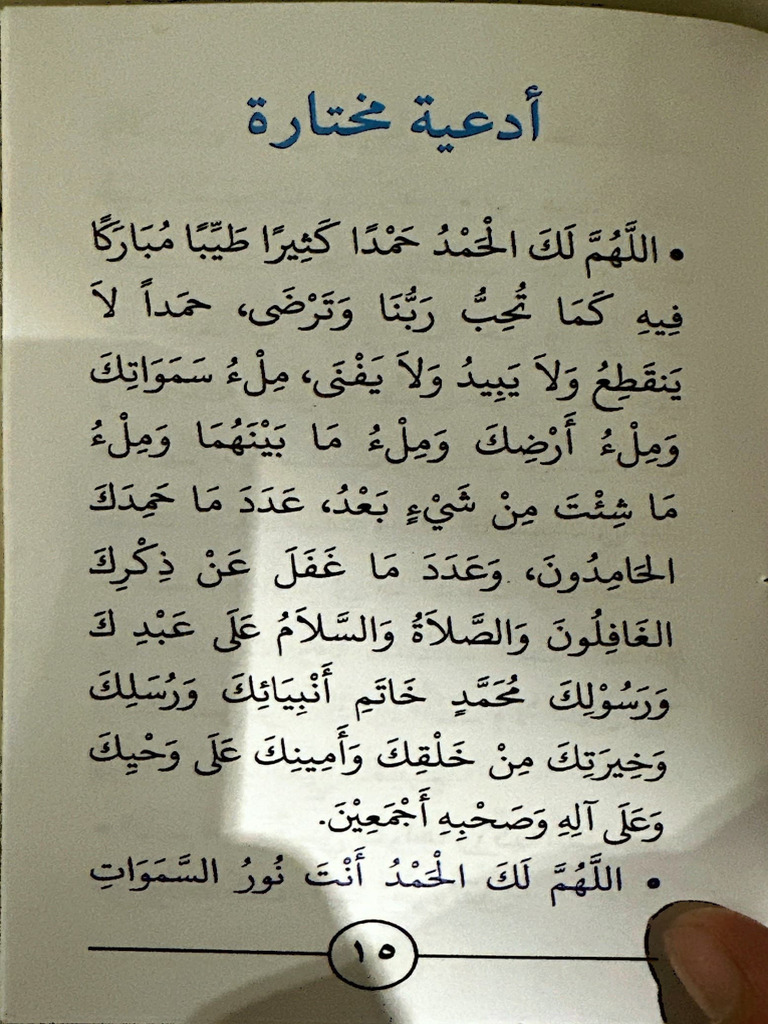 أدعية مختارة
• اللَّهُمَّ لَكَ الْحَمْدُ حَمْدًا كَثِيرًا طَيِّبًا مُبَارَكًا
فِيهِ كَمَا تُحِبُّ رَبُّنَا وَتَرْضَى، حمَداً لاَ
يَنقَطِعُ وَلاَ يَبِيدُ وَلاَ يَفْنَى، مِلْءُ سَمَوَاتِكَ
وَمِلْءُ أَرْضِكَ وَمِلْءُ مَا بَيْنَهُمَا وَمِلْءُ
مَا شِئْتَ مِنْ شَيْءٍ بَعْدُ، عَدَدَ مَا حَمِدَكَ
الحَامِدُونَ، وَعَدَدَ مَا غَفَلَ عَنْ ذِكْرِكَ
الغَافِلُونَ وَالصَّلاَةُ وَالسَّلاَمُ عَلَى عَبْدِ كَ
وَرَسُوْلِكَ مُحَمَّدٍ خَاتَمِ أَنْبِيَائِكَ وَرُسَلِكَ
وَخِيرَتِكَ مِنْ خَلْقِكَ وَأَمِينِكَ عَلَى وَحْيِكَ
وَعَلَى آلِهِ وَصَحْبِهِ أَجْمَعِيْنَ.
• اللَّهُمَّ لَكَ الْحَمْدُ أَنْتَ نُورُ السَّمَوَاتِ
١٥